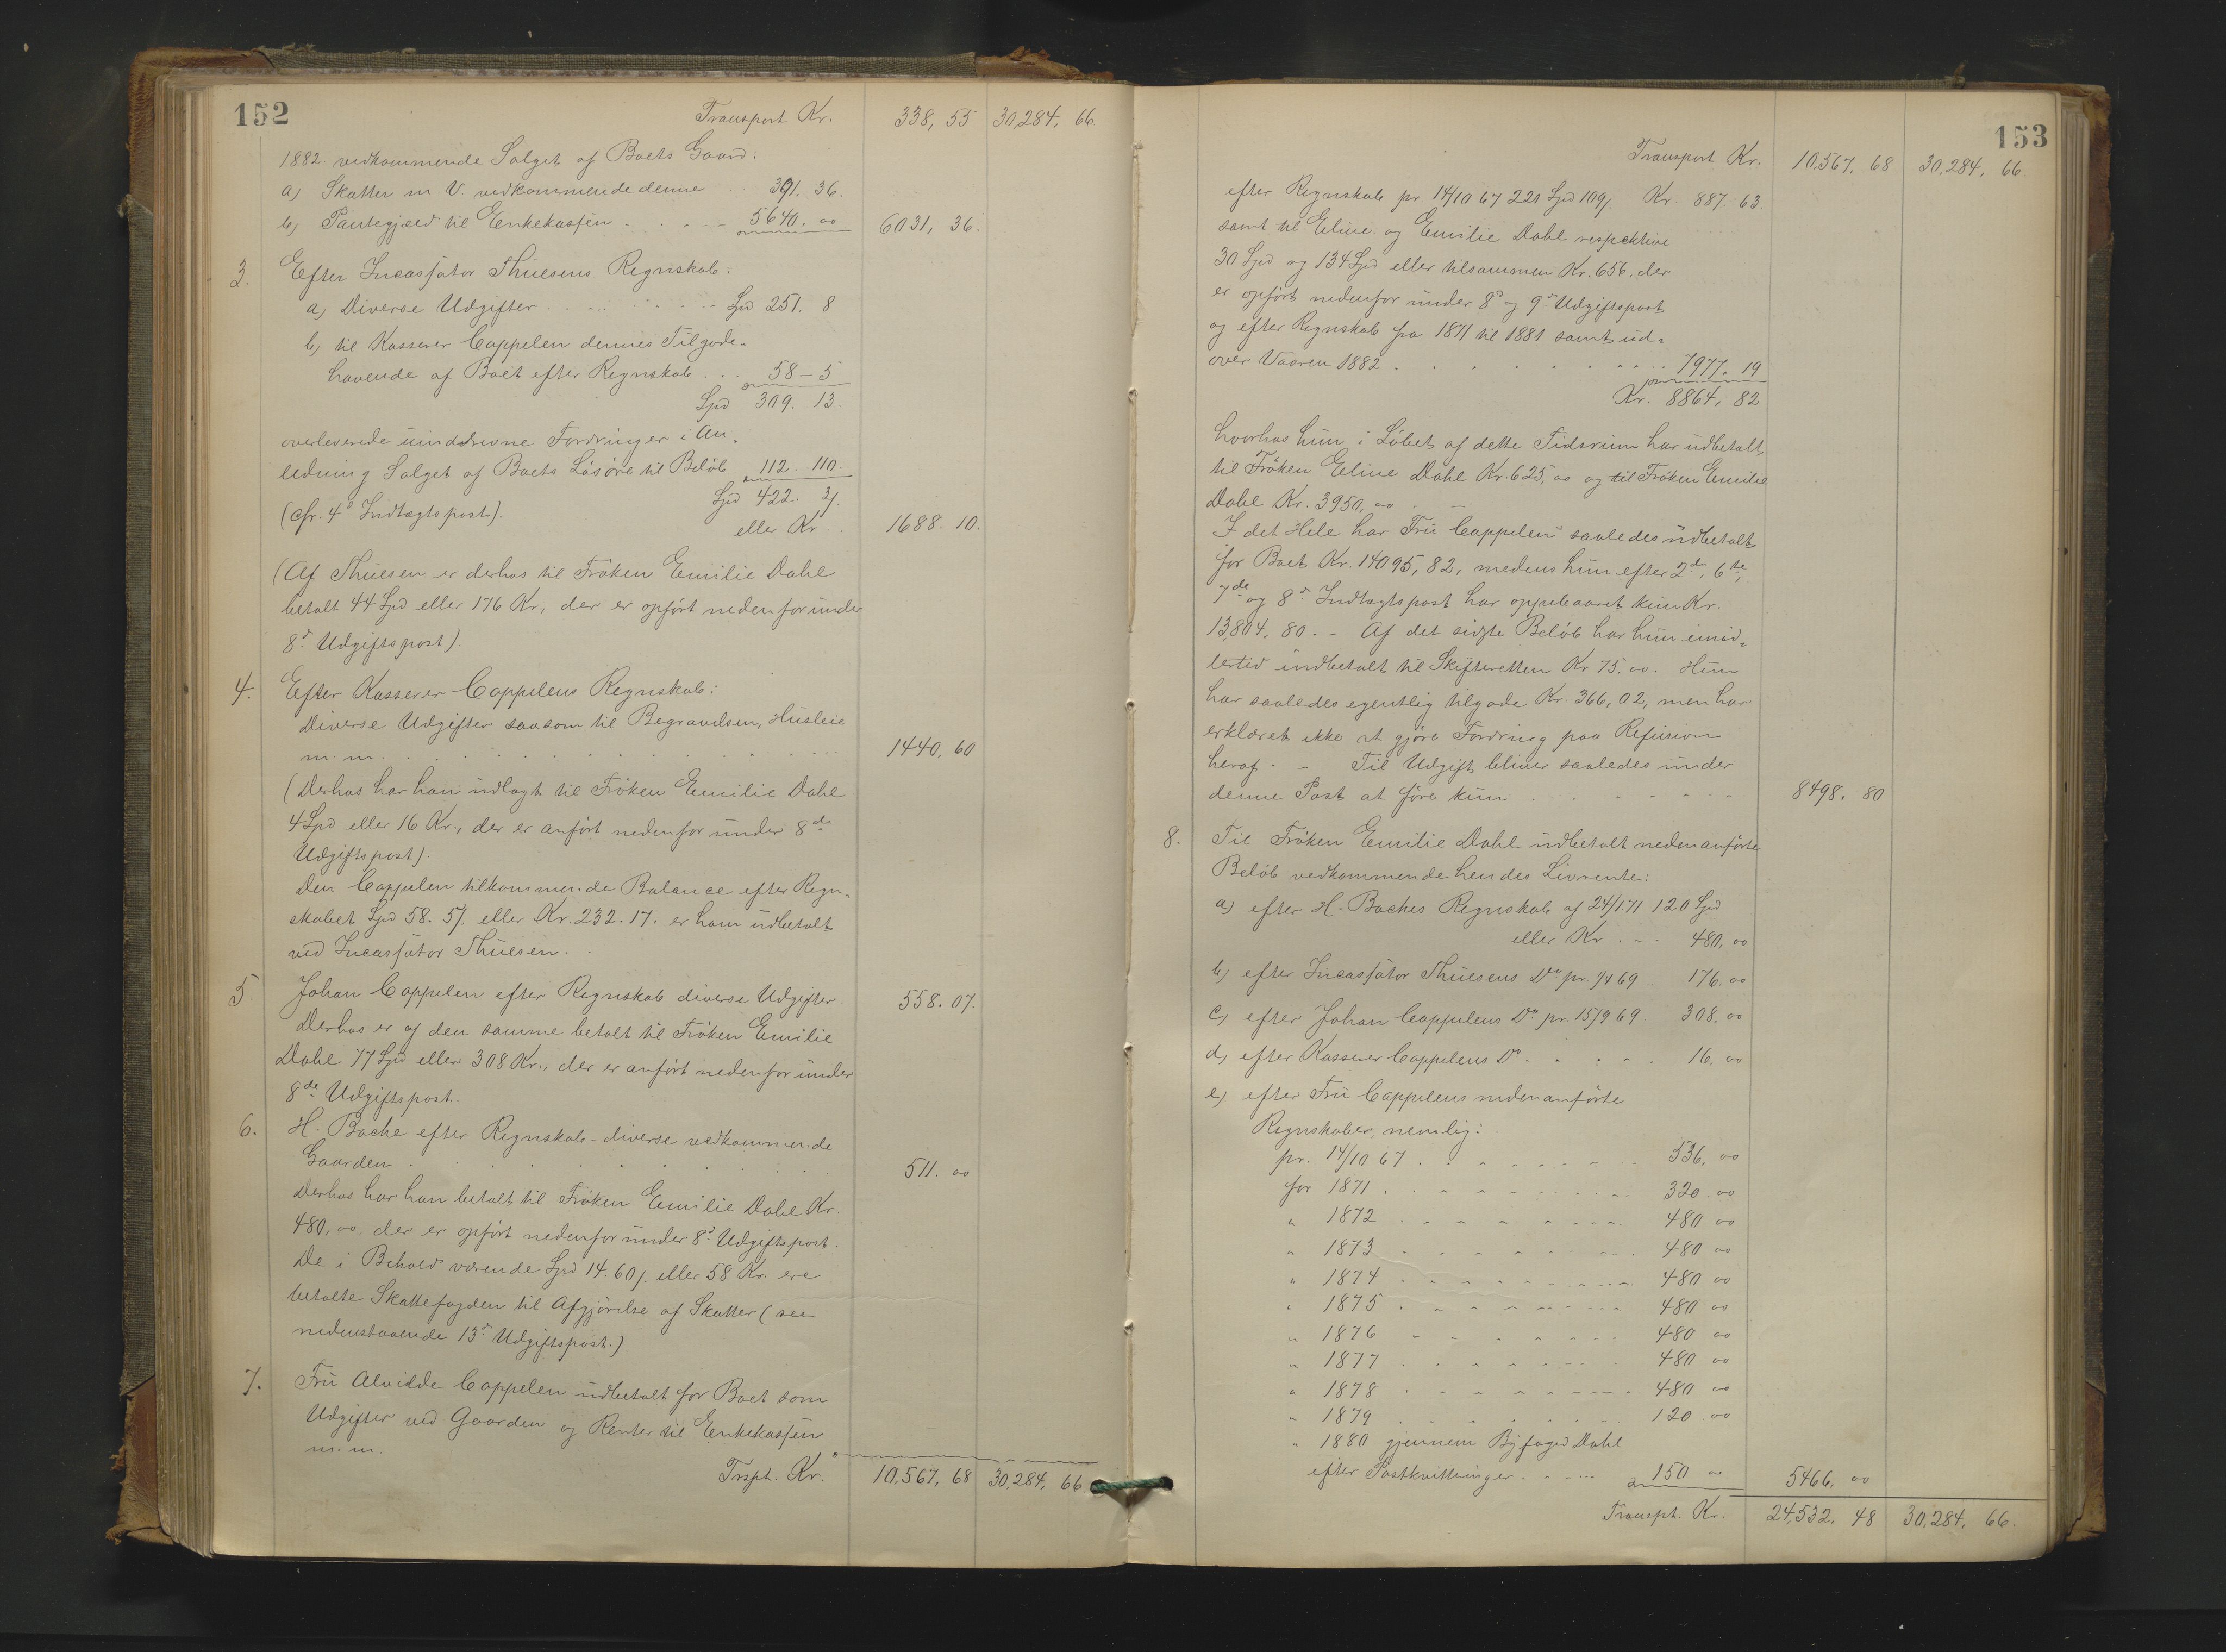 152
Transport Kr. 338, 55 30,284, 66.
1882 vedkommende Salget af Boets Gaard:
a) Skatter m. V. vedkommende denne 391. 36.
b) Pantegjæld til Enkekassen . . . . 5640. 00 6031, 36.
3. Efter Incassator Thuesens Regnskab:
a) Diverse Udgifter . . . . . . . Spd 251. 8
b) til Kasserer Cappelen dennes Tilgode-
havende af Boet efter Regnskab . . . 58 – 5
Spd 309. 13.
overleverede uinddrevne Fordringer i An-
ledning Salget af Boets Løsøre til Beløb 112. 110.
(cfr. 4d Indtægtspost). Spd 422. 3/.
eller Kr. . 1688. 10.
(Af Thuesen er derhos til Frøken Emilie Dahl
betalt 44 Spd eller 176 Kr., der er opført nedenfor under
8d Udgiftspost).
4. Efter Kasserer Cappelens Regnskab:
Diverse Udgifter saasom til Begravelsen, Husleie
m. m. . . . . . . . . . 1440, 60
(Derhos har han udlagt til Frøken Emilie Dahl
4 Spd eller 16 Kr., der er anført nedenfor under 8de
Udgiftspost).
Den Cappelen tilkommende Balance efter Regn-
skabet Spd 58. 5/. eller Kr. 232. 17. er ham udbetalt
ved Incassator Thuesen. .
5. Johan Cappelen efter Regnskab diverse Udgifter 558. 07.
Derhos er af den samme betalt til Frøken Emilie
Dahl 77 Spd eller 308 Kr., der er anført nedenfor under
8de Udgiftspost.
6. H. Bache efter Regnskab - diverse vedkommende
Gaarden . . . . . . . . . 511. 00
Derhos har han betalt til Frøken Emilie Dahl Kr.
480,00, der er opført nedenfor under 8d Udgiftspost.
De i Behold værende Spd 14. 60/. eller 58 Kr. ere
betalte Skattefogden til Afgjørelse af Skatter (see
nedenstaaende 13d Udgiftspost.)
7. Fru Alvilde Cappelen udbetalt for Boet som
Udgifter ved Gaarden og Renter til Enkekassen
m. m.
Trspt. Kr. 10,567, 68 30,284, 66.
153
Transport Kr. 10,567, 68 30,284, 66.
efter Regnskab pr. 14/10 67 221 Spd 109/. Kr. 887. 63
samt til Eline og Emilie Dahl respektive
30 Spd og 134 Spd eller tilsammen Kr. 656, der
er opført nedenfor under 8d og 9d Udgiftspost
og efter Regnskab fra 1871 til 1881 samt ud-
over Vaaren 1882 . . . . . . . . . 7977. 19
Kr. 8864, 82
hvorhos hun i Løbet af dette Tidsrum har udbetalt
til Frøken Eline Dahl Kr. 625,00 og til Frøken Emilie
Dahl Kr. 3950,00 . –
I det Hele har Fru Cappelen saaledes udbetalt
for Boet Kr. 14095, 82, medens hun efter 2den, 6te,
7de og 8d Indtægtspost har oppebaaret kun Kr.
13,804, 80. – Af det sidste Beløb har hun imid-
lertid indbetalt til Skifteretten Kr 75.00. Hun
har saaledes egentlig tilgode Kr. 366,02, men har
erklæret ikke at gjøre Fordring paa Refusion
heraf. – Til Udgift bliver saaledes under
denne Post at føre kun . . . . . . . 8498. 80
8. Til Frøken Emilie Dahl udbetalt nedenanførte
Beløb vedkommende hendes Livrente:
a) efter H. Baches Regnskab af 24/1 71 120 Spd
eller Kr . . . 480,00
b) efter Incassator Thuesens Do pr. 1/4 69 176.00
c) efter Johan Cappelens Do pr. 15/9 69 308.00
d) efter Kasserer Cappelens Do . . . . . 16,00
e) efter Fru Cappelens nedenanførte
Regnskaber, nemlig:
pr. 14/10 67 . . . . . . . . 536, 00
for 1871 . . . . . . . . 320. 00
" 1872 . . . . . . . . 480 00
" 1873 . . . . . . . . 480 00
" 1874 . . . . . . . . 480 00
" 1875 . . . . . . . . 480 00
" 1876 . . . . . . . 480 00
" 1877 . . . . . . . 480 00
" 1878 . . . . . . . . 480 00
" 1879 . . . . . . . 120. 00
" 1880 gjennem Byfoged Dahl
efter Postkvitteringer . . . . 150 00 5466, 00
Transpt. Kr. 24,532, 48 30,284, 66.